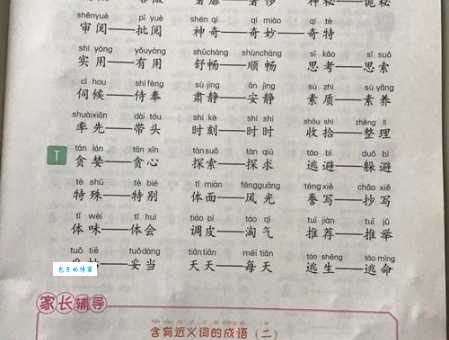 shěnyuè pī yuè shén qí qí miào qí tè
审阅——批阅 神奇——奇妙——奇特
shí yòng yǒuyòng shūchàng shùnchàng sī kǎo sī suǒ
实用——有用 舒畅——顺畅 思考——思索
cì hou shì fèng sù jìng ān jìng sù zhì sù yǎng
伺候——侍奉 肃静——安静 素质——素养
shuàixiān dài tóu shí kè shí shí shōu shi zhěng lǐ
率先——带头 时刻——时时 收拾——整理
T
tān lán tān xīn tànsuǒ tàn qiú táo bì duǒ bì
贪婪——贪心 探索——探求 逃避——躲避
tè shū tè bié tǐ miàn fēngguāng téngxiě chāo xiě
特殊——特别 体面——风光 誊写——抄写
tǐ wèi tǐ huì tiáo pí táo qì tuī jiàn tuī jǔ
体味——体会 调皮——淘气 推荐——推举
tuǒ tiē tuǒdàng tiāntiān měi tiān táo shēng táo mìng
——妥当 天天——每天 逃生——逃命
家长辅导
含有近义词的成语（二）